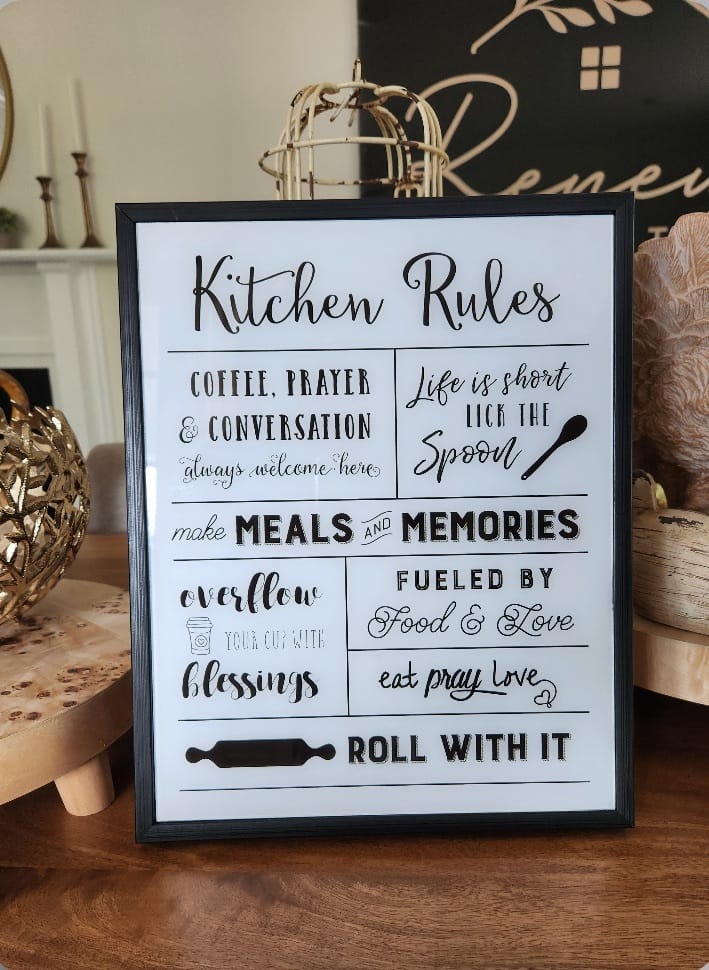 Renew
Kitchen Rules
COFFEE, PRAYER
& CONVERSATION
always welcome here
Life is short
LICK THE
Spoon
make MEALS AND MEMORIES
overflow
YOUR CUP WITH
blessings
FUELED BY
Food & Love
eat pray love
ROLL WITH IT